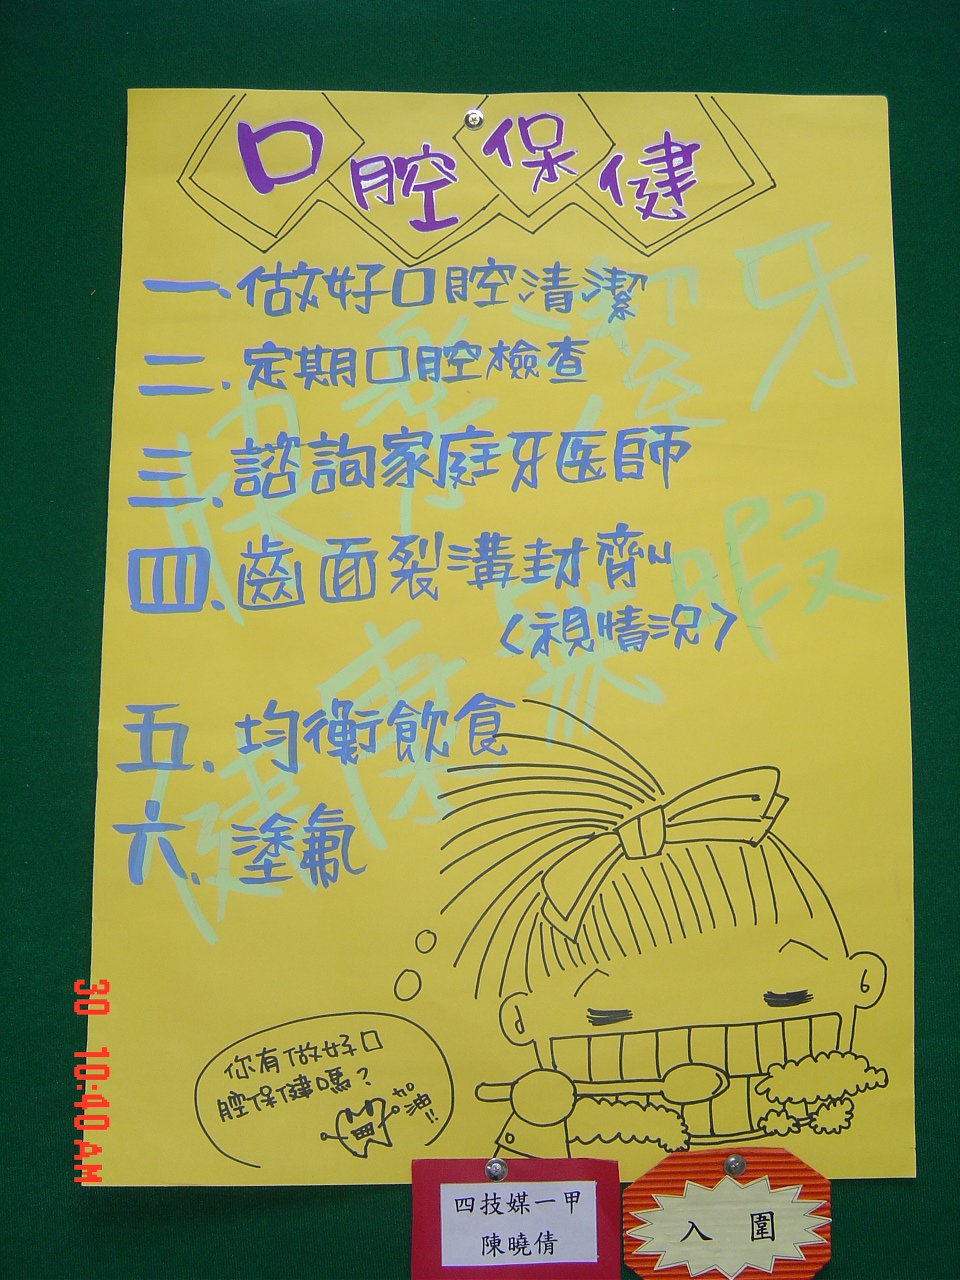 口腔保健
一.做好口腔清潔
二.定期口腔檢查
三.諮詢家庭牙医師
四.齒面裂溝封劑
〈視情況〉
五.均衡飲食
六.塗氟
快樂潔牙
健康無暇
你有做好口
腔保健嗎?
加油!!
四技媒一甲
陳曉倩
入圍
30 10:40 AM